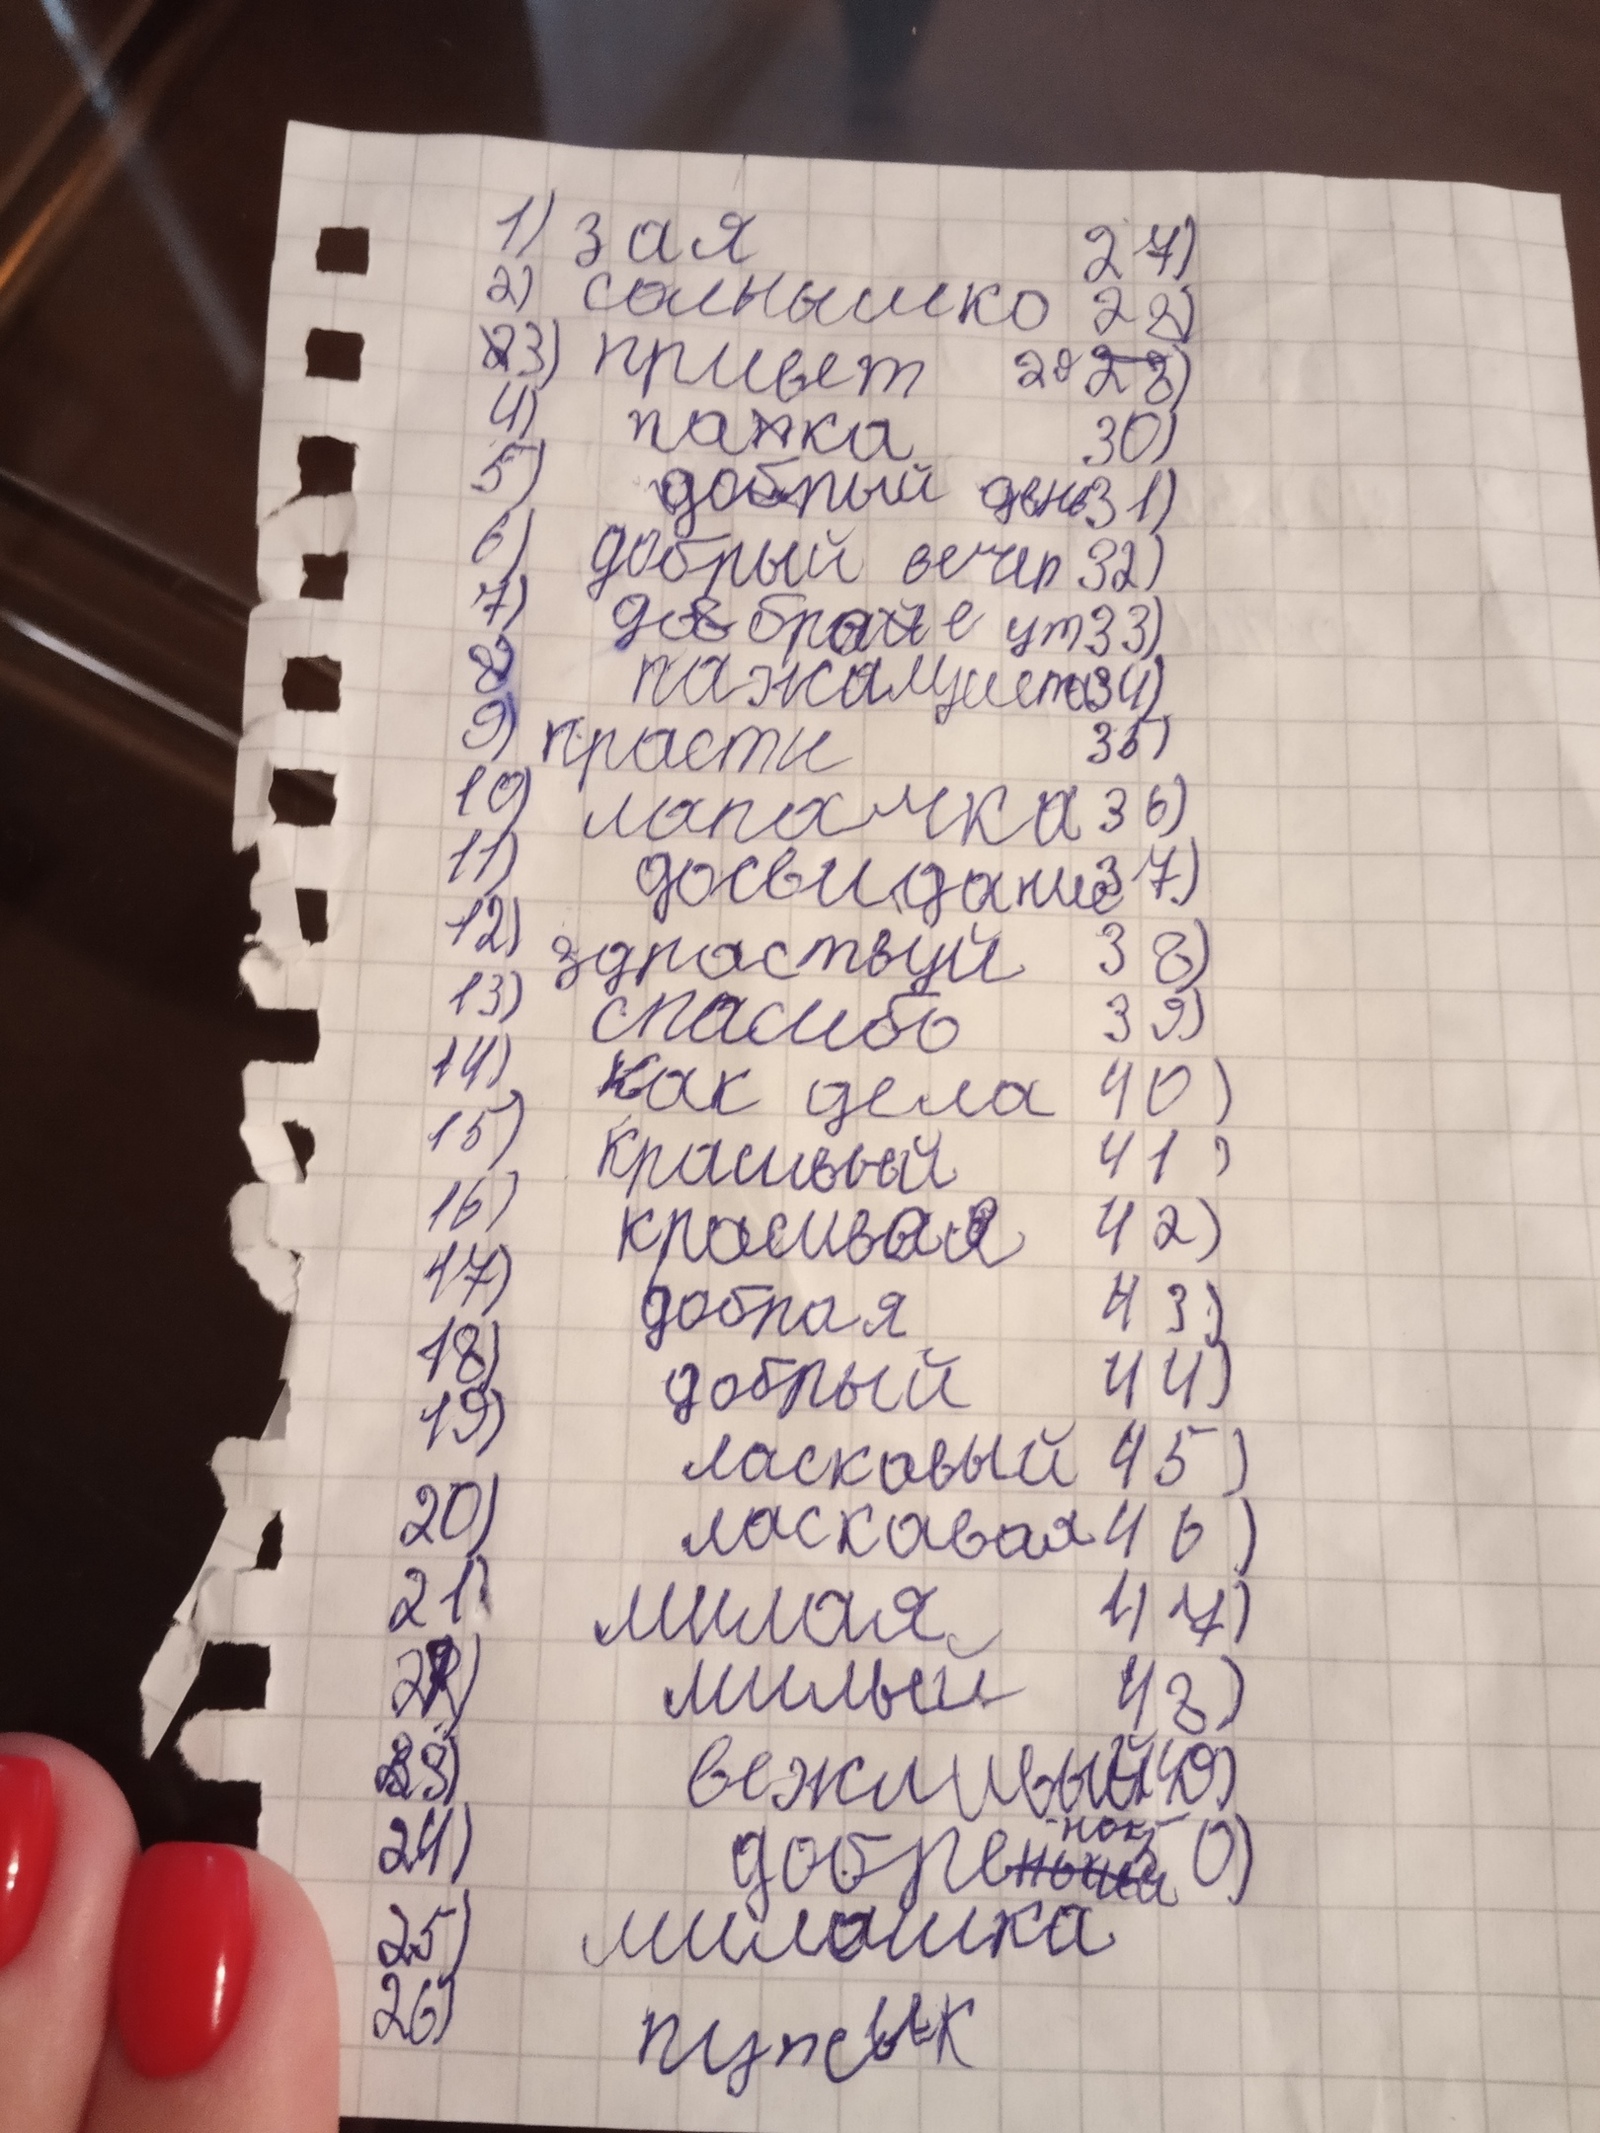 1) зая 27)
2) солнышко 28)
3) привет 29 28)
4) папка 30)
5) добрый день 31)
6) добрый вечер 32)
7) доброе ут 33)
8 пажалуиста 34)
9) прасти 35)
10) лапачка 36)
11) досвидание 37)
12) здраствуй 38)
13) спасибо 39)
14) как дела 40)
15) красивый 41)
16) красивая 42)
17) добрая 43)
18) добрый 44)
19) ласкавый 45)
20) ласкавая 46)
21) милая 47)
22) милый 48)
23) вежливый 49)
24) добренок 50)
25) милашка
26) пупсик